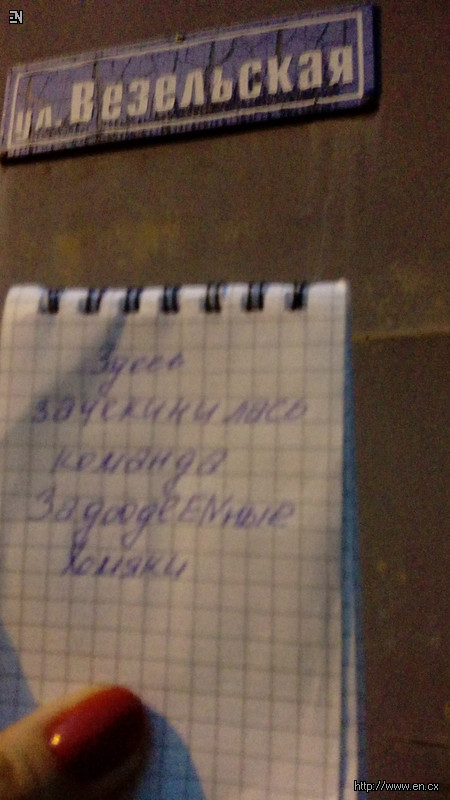 EN
ул. Везельская
Здесь
зачекинилась
команда
ЗадоодеENные
хомяки
http://www.en.cx